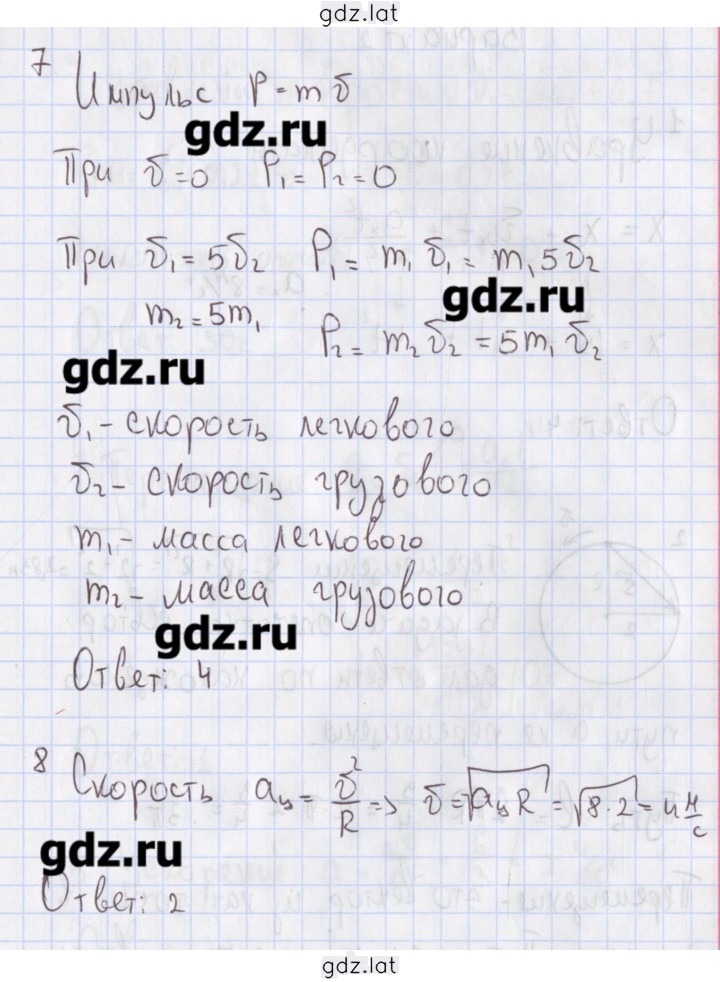 gdz.lat
7 Импульс P = m υ
gdz.ru
При υ = 0 P₁ = P₂ = 0
При υ₁ = 5υ₂ P₁ = m₁ υ₁ = m₁ 5υ₂
gdz.ru
m₂ = 5m₁ P₂ = m₂ υ₂ = 5m₁ υ₂
gdz.ru
υ₁ - скорость легкового
υ₂ - скорость грузового
m₁ - масса легкового
m₂ - масса грузового
gdz.ru
Ответ: 4
8 Скорость aц = υ²/R => υ = √aцR = √8·2 = 4 м/с
gdz.ru
Ответ: 2
gdz.lat